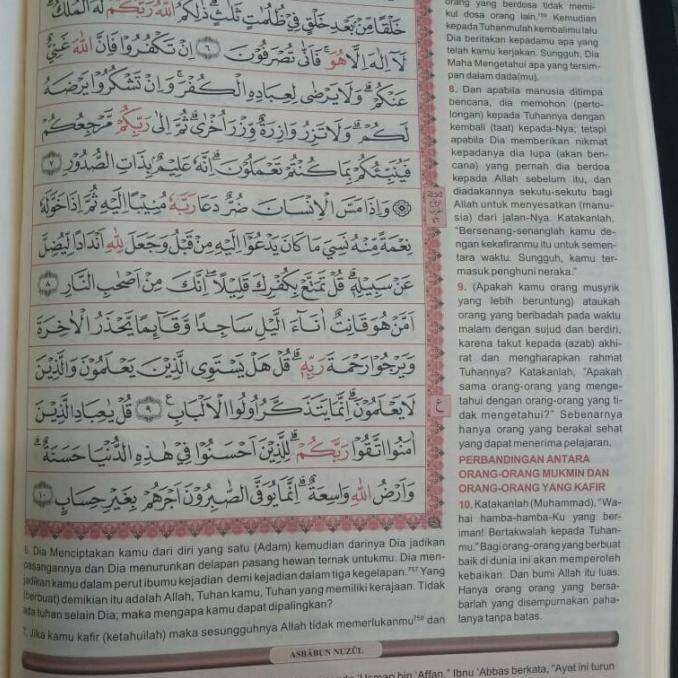 خَلْقًا مِّنْۢ بَعْدِ خَلْقٍ فِيْ ظُلُمٰتٍ ثَلٰثٍۗ ذٰلِكُمُ اللّٰهُ رَبُّكُمْ لَهُ الْمُلْكُۗ
لَآ اِلٰهَ اِلَّا هُوَۚ فَاَنّٰى تُصْرَفُوْنَ ٦ اِنْ تَكْفُرُوْا فَاِنَّ اللّٰهَ غَنِيٌّ
عَنْكُمْۗ وَلَا يَرْضٰى لِعِبَادِهِ الْكُفْرَۚ وَاِنْ تَشْكُرُوْا يَرْضَهُ
لَكُمْۗ وَلَا تَزِرُ وَازِرَةٌ وِّزْرَ اُخْرٰىۗ ثُمَّ اِلٰى رَبِّكُمْ مَّرْجِعُكُمْ
فَيُنَبِّئُكُمْ بِمَا كُنْتُمْ تَعْمَلُوْنَۗ اِنَّهٗ عَلِيْمٌۢ بِذَاتِ الصُّدُوْرِ ٧
۞ وَاِذَا مَسَّ الْاِنْسَانَ ضُرٌّ دَعَا رَبَّهٗ مُنِيْبًا اِلَيْهِ ثُمَّ اِذَا خَوَّلَهٗ
نِعْمَةً مِّنْهُ نَسِيَ مَا كَانَ يَدْعُوْٓا اِلَيْهِ مِنْ قَبْلُ وَجَعَلَ لِلّٰهِ اَنْدَادًا لِّيُضِلَّ
عَنْ سَبِيْلِهٖۗ قُلْ تَمَتَّعْ بِكُفْرِكَ قَلِيْلًاۖ اِنَّكَ مِنْ اَصْحٰبِ النَّارِ ٨
اَمَّنْ هُوَ قَانِتٌ اٰنَاۤءَ الَّيْلِ سَاجِدًا وَّقَاۤىِٕمًا يَّحْذَرُ الْاٰخِرَةَ
وَيَرْجُوْا رَحْمَةَ رَبِّهٖۗ قُلْ هَلْ يَسْتَوِى الَّذِيْنَ يَعْلَمُوْنَ وَالَّذِيْنَ
لَا يَعْلَمُوْنَۗ اِنَّمَا يَتَذَكَّرُ اُولُوا الْاَلْبَابِ ٩ قُلْ يٰعِبَادِ الَّذِيْنَ
اٰمَنُوا اتَّقُوْا رَبَّكُمْۗ لِلَّذِيْنَ اَحْسَنُوْا فِيْ هٰذِهِ الدُّنْيَا حَسَنَةٌۗ
وَاَرْضُ اللّٰهِ وَاسِعَةٌۗ اِنَّمَا يُوَفَّى الصّٰبِرُوْنَ اَجْرَهُمْ بِغَيْرِ حِسَابٍ ١٠
ع
6. Dia Menciptakan kamu dari diri yang satu (Adam) kemudian darinya Dia jadikan
pasangannya dan Dia menurunkan delapan pasang hewan ternak untukmu. Dia men-
jadikan kamu dalam perut ibumu kejadian demi kejadian dalam tiga kegelapan.⁷⁵⁷ Yang
(berbuat) demikian itu adalah Allah, Tuhan kamu, Tuhan yang memiliki kerajaan. Tidak
ada tuhan selain Dia; maka mengapa kamu dapat dipalingkan?
7. Jika kamu kafir (ketahuilah) maka sesungguhnya Allah tidak memerlukanmu⁷⁵⁸ dan
orang yang berdosa tidak memi-
kul dosa orang lain.⁷⁵⁹ Kemudian
kepada Tuhanmulah kembalimu lalu
Dia beritakan kepadamu apa yang
telah kamu kerjakan. Sungguh, Dia
Maha Mengetahui apa yang tersim-
pan dalam dada(mu).
8. Dan apabila manusia ditimpa
bencana, dia memohon (perto-
longan) kepada Tuhannya dengan
kembali (taat) kepada-Nya; tetapi
apabila Dia memberikan nikmat
kepadanya dia lupa (akan ben-
cana) yang pernah dia berdoa
kepada Allah sebelum itu, dan
diadakannya sekutu-sekutu bagi
Allah untuk menyesatkan (manu-
sia) dari jalan-Nya. Katakanlah,
"Bersenang-senanglah kamu de-
ngan kekafiranmu itu untuk semen-
tara waktu. Sungguh, kamu ter-
masuk penghuni neraka."
9. (Apakah kamu orang musyrik
yang lebih beruntung) ataukah
orang yang beribadah pada waktu
malam dengan sujud dan berdiri,
karena takut kepada (azab) akhi-
rat dan mengharapkan rahmat
Tuhannya? Katakanlah, "Apakah
sama orang-orang yang menge-
tahui dengan orang-orang yang ti-
dak mengetahui?" Sebenarnya
hanya orang yang berakal sehat
yang dapat menerima pelajaran.
PERBANDINGAN ANTARA
ORANG-ORANG MUKMIN DAN
ORANG-ORANG YANG KAFIR
10. Katakanlah (Muhammad), "Wa-
hai hamba-hamba-Ku yang ber-
iman! Bertakwalah kepada Tuhan-
mu." Bagi orang-orang yang berbuat
baik di dunia ini akan memperoleh
kebaikan. Dan bumi Allah itu luas.
Hanya orang-orang yang bersa-
barlah yang disempurnakan paha-
lanya tanpa batas.
ASBĀBUN NUZŪL
'Usman bin 'Affan." Ibnu 'Abbas berkata, "Ayat ini turun